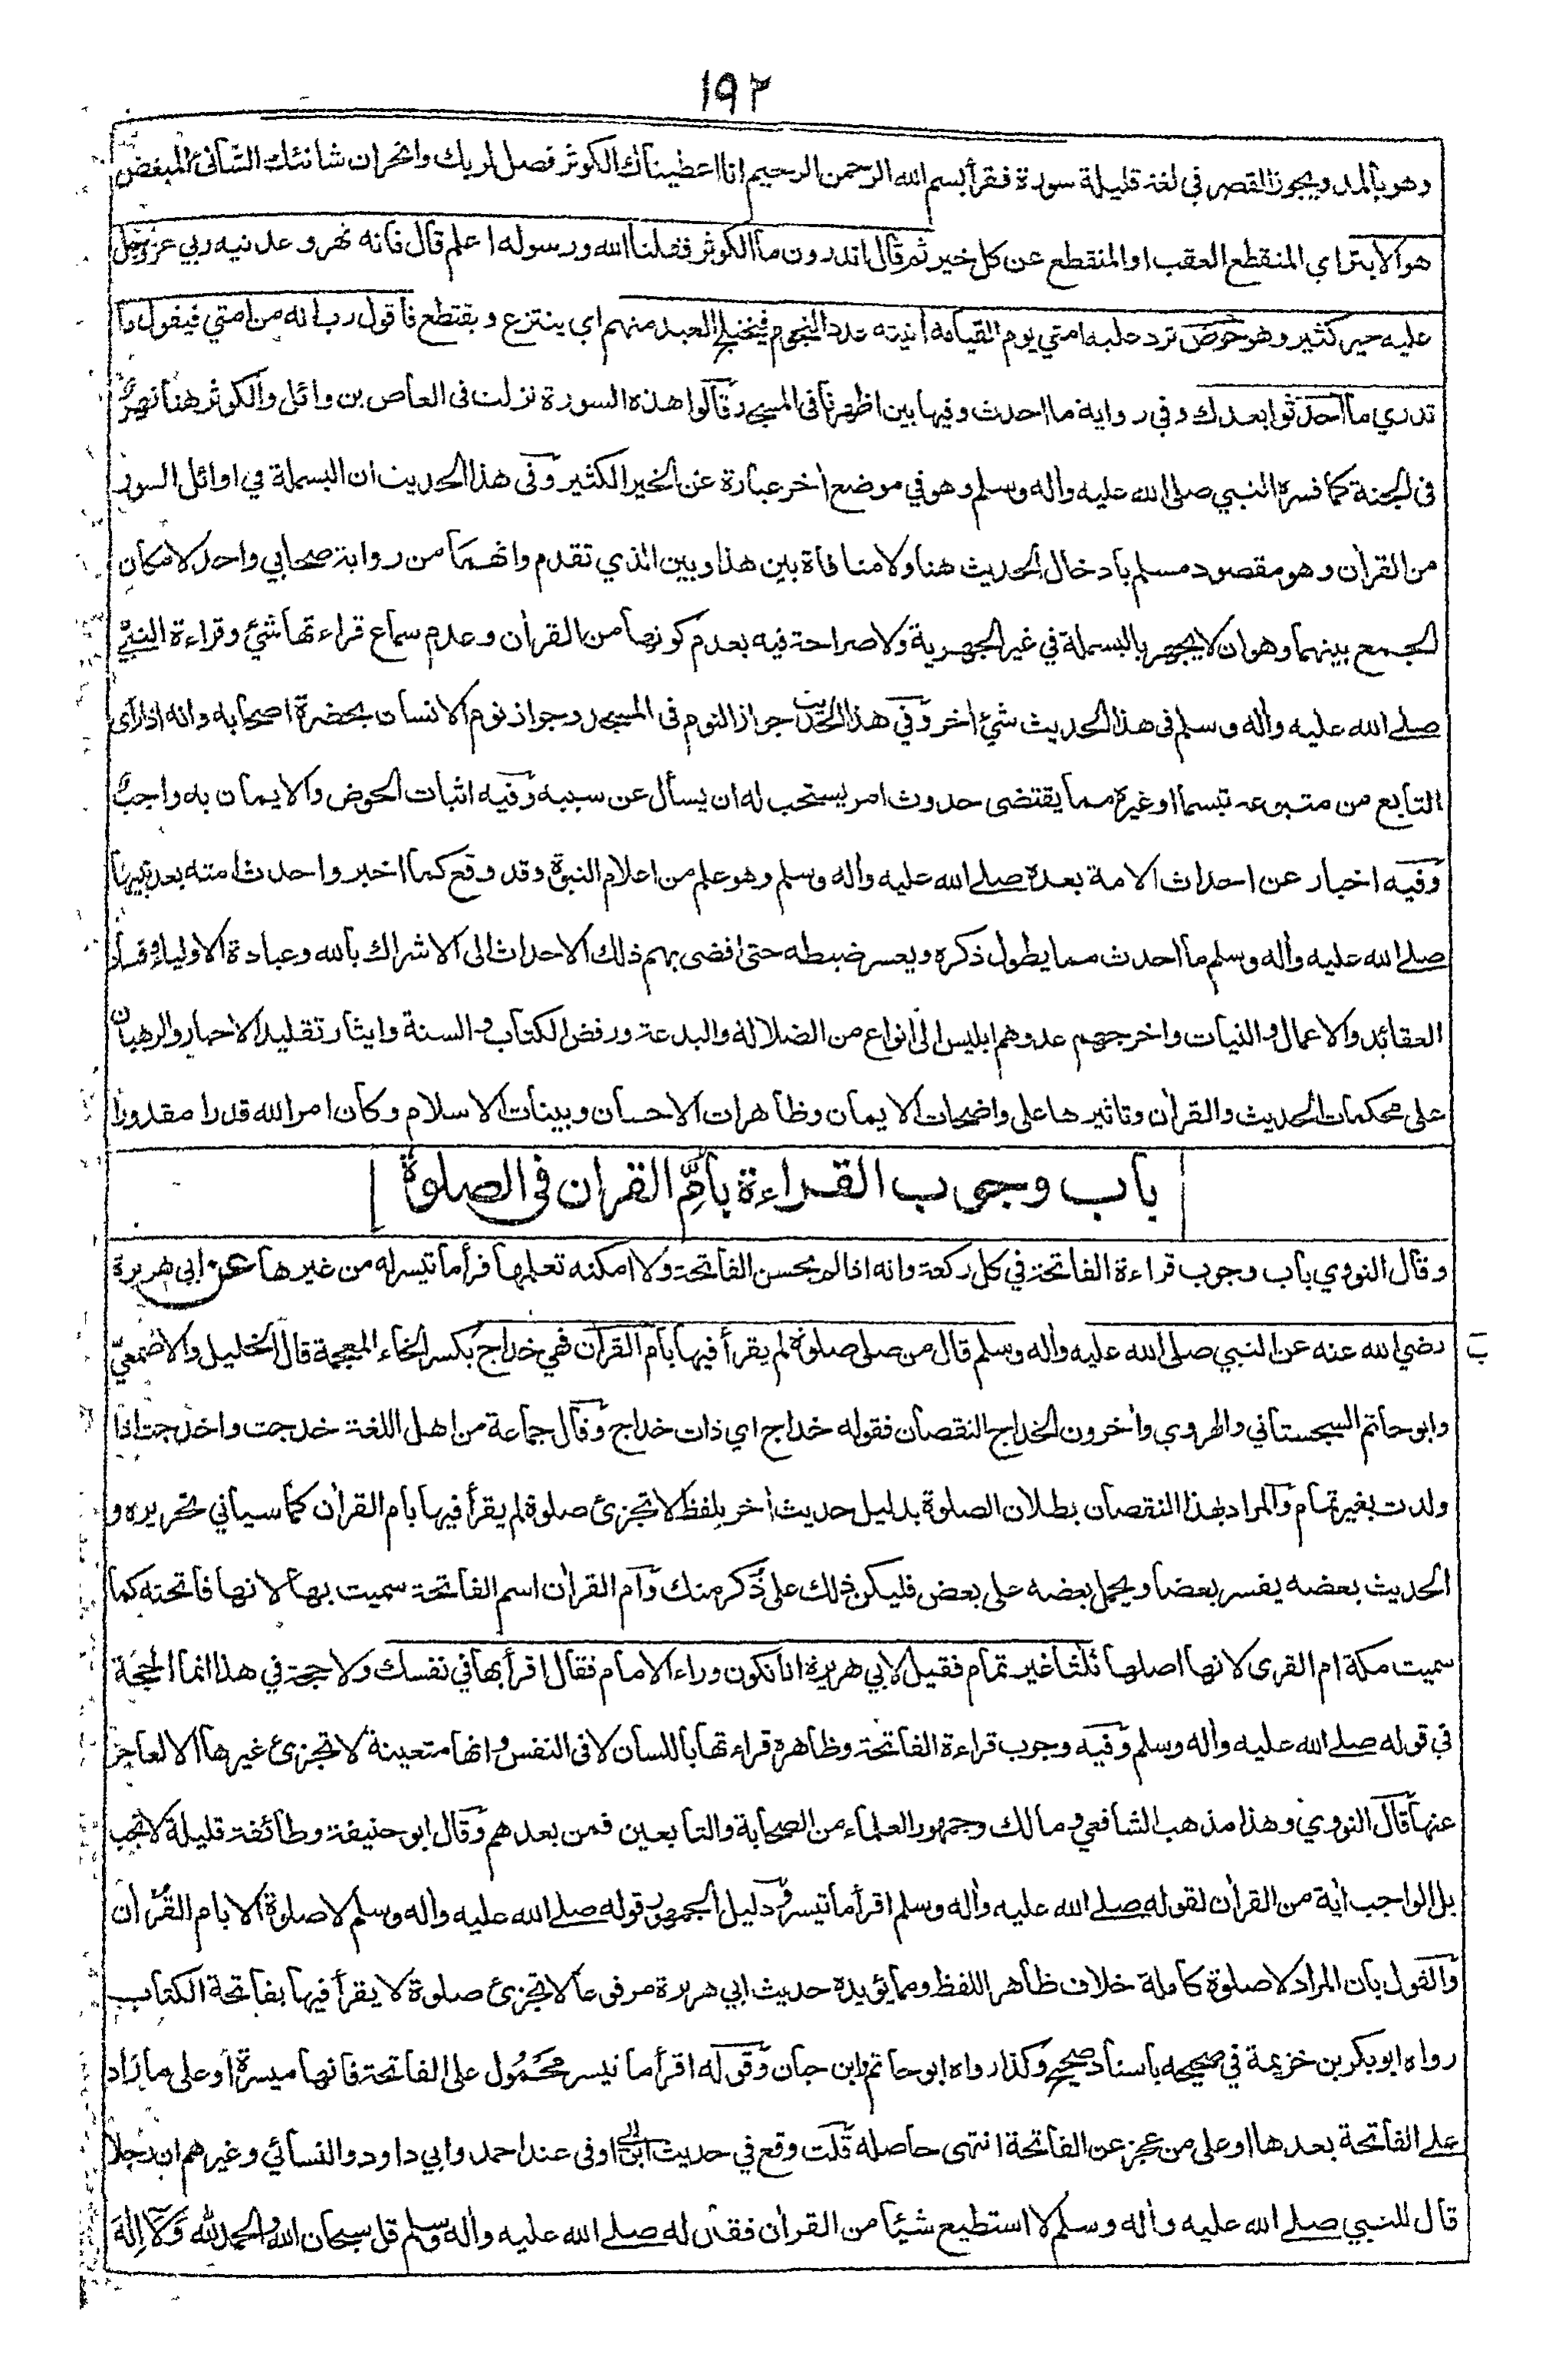 ١٩٢
وهو بالمد ويجوز القصر في لغة قليلة سورة فقرأ بسم الله الرحمن الرحيم انا اعطيناك الكوثر فصل لربك وانحر ان شانئك الشانئ المبغض
هو الابتر اي المنقطع العقب او المنقطع عن كل خير ثم قال اتدرون ما الكوثر فقلنا الله ورسوله اعلم قال فانه نهر وعدنيه ربي عز وجل
عليه خير كثير وهو حوض ترد عليه امتي يوم القيامة أنيته عدد النجوم فيختلج العبد منهم اي ينتزع ويقتطع فاقول رب انه من امتي فيقول ما
تدري ما احدثوا بعدك وفي رواية ما احدث وفيها بين اظهرنا فى المسجد وقالوا هذه السورة نزلت فى العاص بن وائل والكوثر هنا نهر
فى الجنة كما فسره النبي صلى الله عليه واله وسلم وهو في موضع أخر عبارة عن الخير الكثير وفى هذا الحديث ان البسملة في اوائل السور
من القرأن وهو مقصود مسلم بادخال الحديث هنا ولا منافاة بين هذا وبين الذي تقدم وانهما من رواية صحابي واحد لامكان
الجمع بينهما وهو ان لا يجهر بالبسملة في غير الجهرية ولا صراحة فيه بعدم كونها من القرأن وعدم سماع قراءتها شئ وقراءة النبي
صلے الله عليه واله وسلم فى هذا الحديث شئ اخر وفي هذا الحديث جواز النوم فى المسجد وجواز نوم الانسان بحضرة اصحابه وانه اذا رأى
التابع من متبوعه تبسما او غيره مما يقتضى حدوث امر يستحب له ان يسأل عن سببه وفيه اثبات الحوض والايمان به واجب
وفيه اخبار عن احداث الامة بعده صلے الله عليه واله وسلم وهو علم من اعلام النبوة وقد وقع كما اخبر واحدث امته بعد نبيها
صلے الله عليه واله وسلم ما احدث مما يطول ذكره ويعسر ضبطه حتى افضى بهم ذلك الاحداث الى الاشراك بالله وعبادة الاولياء وفساد
العقائد والاعمال والنيات واخرجهم عدوهم ابليس الى انواع من الضلالة والبدعة ورفض الكتاب والسنة وايثار تقليد الاحبار والرهبان
على محكمات الحديث والقرأن وتاثيرها على واضحات الايمان وظاهرات الاحسان وبينات الاسلام وكان امر الله قدرا مقدورا
باب وجوب القراءة بأم القران فى الصلوة
وقال النووي باب وجوب قراءة الفاتحة في كل ركعة وانه اذا لم يحسن الفاتحة ولا امكنه تعلمها قرأ ما تيسر له من غيرها عن ابي هريرة
رضي الله عنه عن النبي صلى الله عليه واله وسلم قال من صلى صلوة لم يقرأ فيها بام القرأن فهي خداج بكسر الخاء المعجمة قال الخليل والاصمعي
وابو حاتم السجستاني والهروي وأخرون الخداج النقصان فقوله خداج اي ذات خداج وقال جماعة من اهل اللغة خدجت واخدجت اذا
ولدت بغير تمام والمراد بهذا النقصان بطلان الصلوة بدليل حديث أخر بلفظ لا تجزئ صلوة لم يقرأ فيها بام القرأن كما سيأتي تحريره و
الحديث بعضه يفسر بعضا ويحمل بعضه على بعض فليكن ذلك على ذكر منك وأم القرأن اسم الفاتحة سميت بها لانها فاتحته كما
سميت مكة ام القرى لانها اصلها ثلثا غير تمام فقيل لابي هريرة انا نكون وراء الامام فقال اقرأ بها في نفسك ولا حجة في هذا انما الحجة
في قوله صلے الله عليه واله وسلم وفيه وجوب قراءة الفاتحة وظاهره قراءتها باللسان لا فى النفس وانها متعينة لا تجزئ غيرها الا لعاجز
عنها قال النووي وهذا مذهب الشافعي ومالك وجمهور العلماء من الصحابة والتابعين فمن بعدهم وقال ابو حنيفة وطائفة قليلة لا تجب
بل الواجب أية من القرأن لقوله صلے الله عليه واله وسلم اقرأ ما تيسر ودليل الجمهور قوله صلے الله عليه واله وسلم لا صلوة الا بام القرأن
والقول بان المراد لا صلوة كاملة خلاف ظاهر اللفظ ومما يؤيده حديث ابي هريرة مرفوعا لا تجزئ صلوة لا يقرأ فيها بفاتحة الكتاب
رواه ابو بكر بن خزيمة في صحيحه باسناد صحيح وكذا رواه ابو حاتم وابن حبان وقوله اقرأ ما تيسر محمول على الفاتحة فانها ميسرة او على ما زاد
على الفاتحة بعدها او على من عجز عن الفاتحة انتهى حاصله قلت وقع في حديث ابن ابي اوفى عند احمد وابي داود والنسائي وغيرهم ان رجلا
قال للنبي صلے الله عليه واله وسلم لا استطيع شيئا من القرأن فقال له صلے الله عليه واله وسلم قل سبحان الله والحمد لله ولا اله